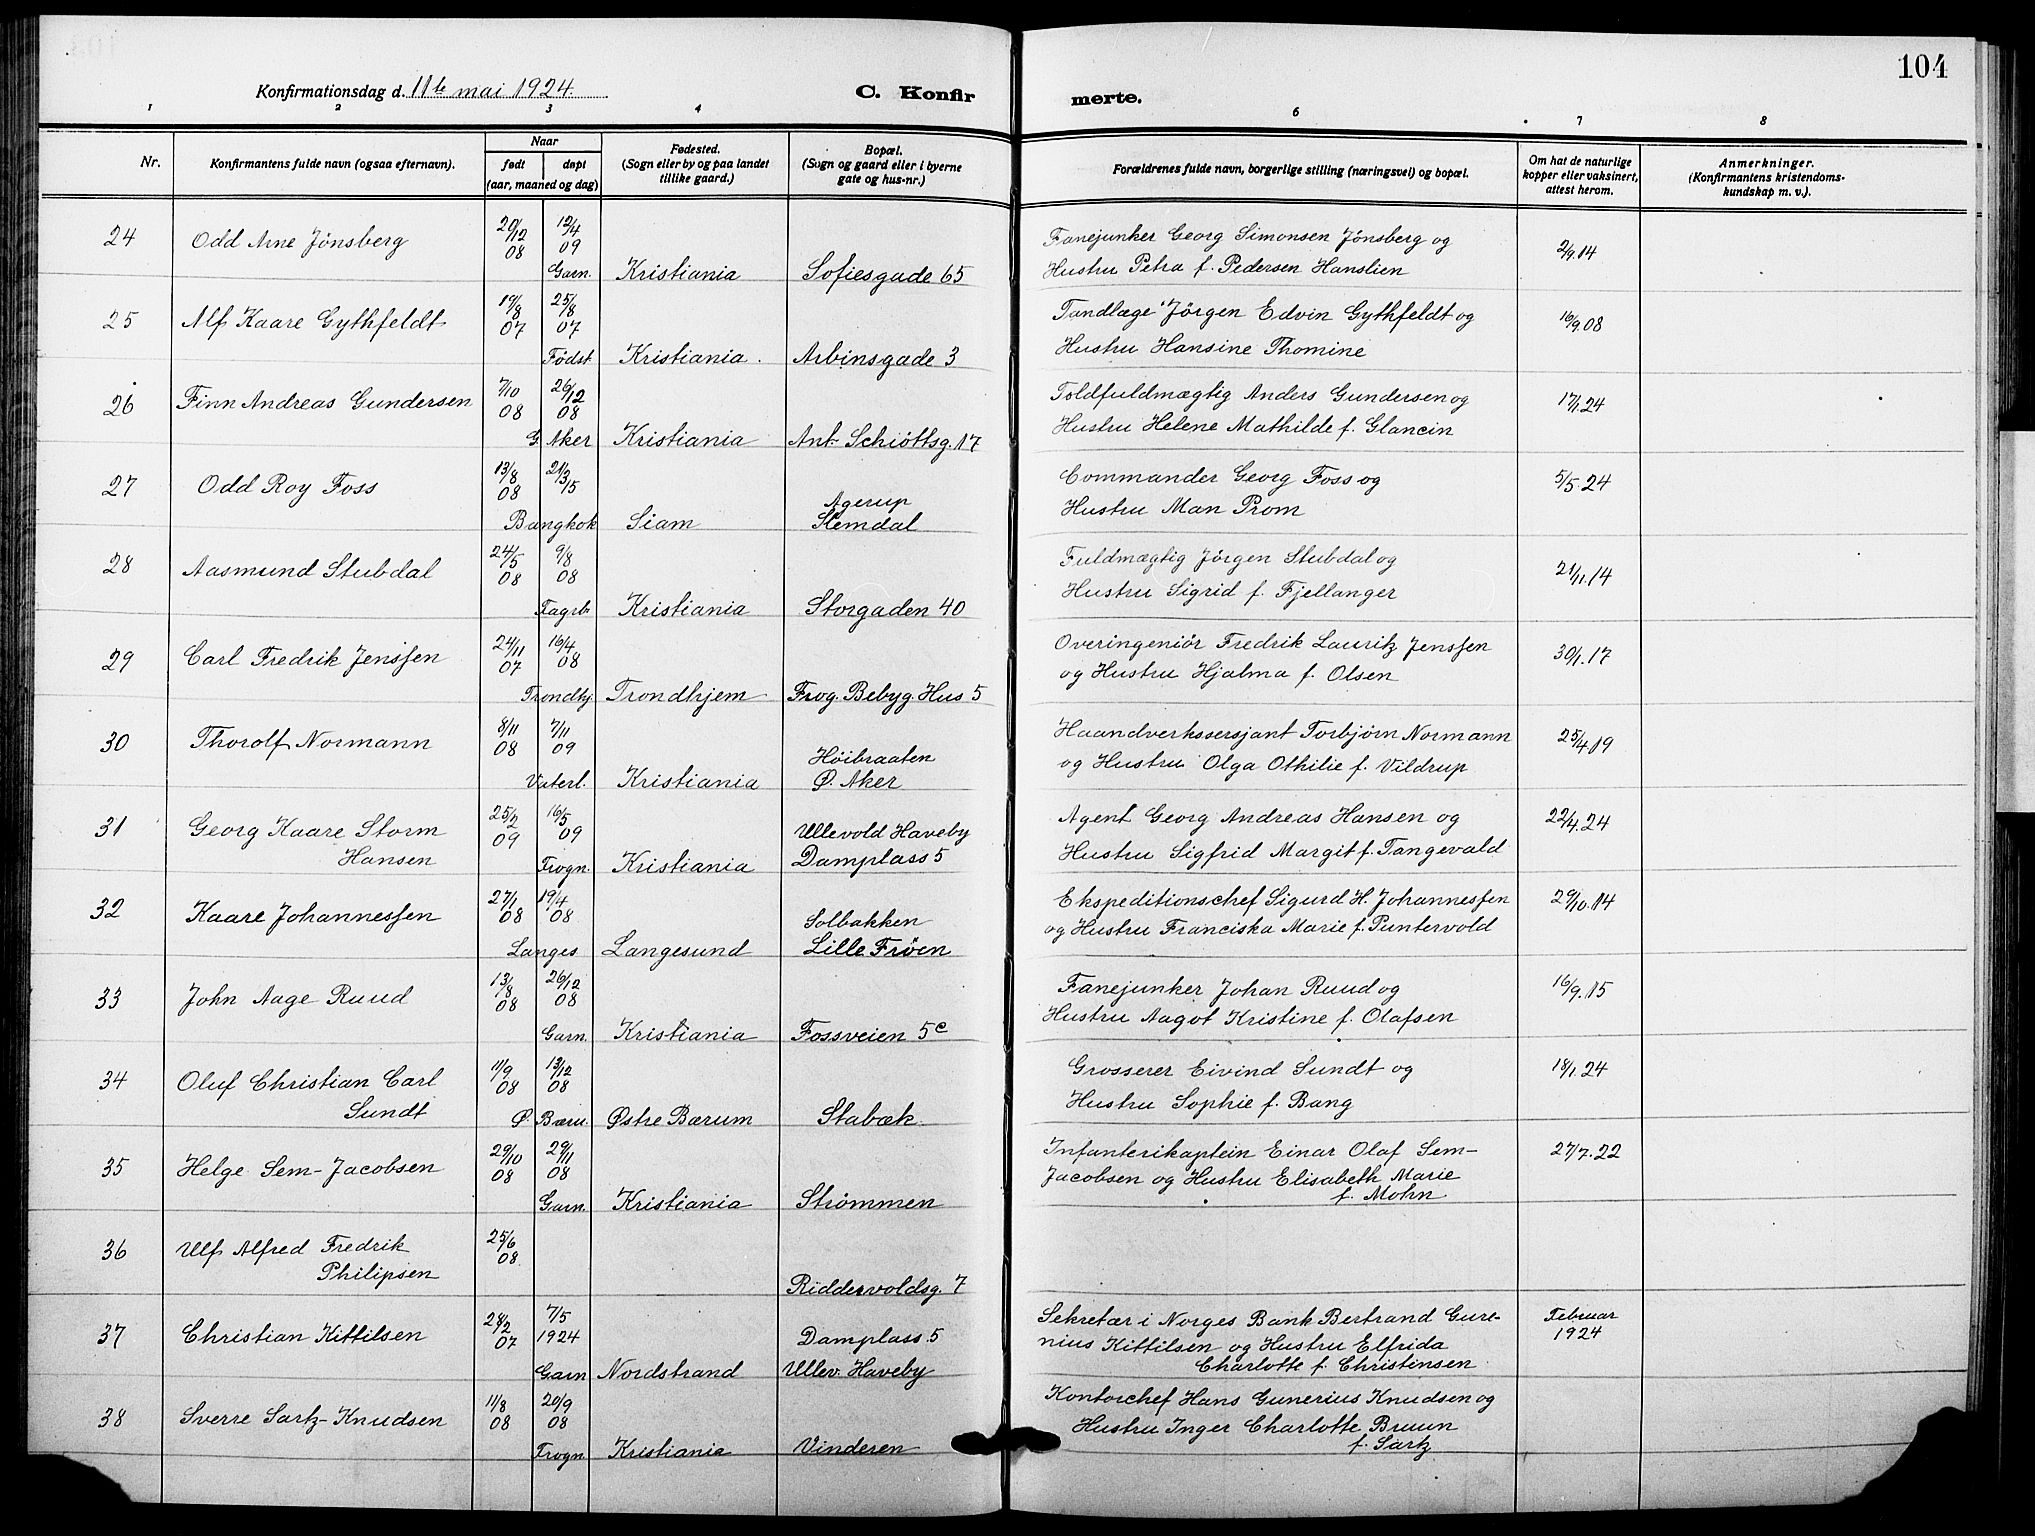 104
Konfirmationsdag d. 11te mai 1924.
C. Konfir merte.
1 2 3 4 6 7 8
Nr.
Konfirmantens fulde navn (ogsaa efternavn).
Naar
født døpt
(aar, maaned og dag)
Fødested.
(Sogn eller by og paa landet
tillike gaard.)
Bopæl.
(Sogn og gaard eller i byerne
gate og hus-nr.)
Forældrenes fulde navn, borgerlige stilling (næringsvei) og bopæl.
Om hat de naturlige
kopper eller vaksinert,
attest herom.
Anmerkninger.
(Konfirmantens kristendoms-
kundskap m. v.).
24 Odd Arne Jönsberg 20/12 08 12/4 09 Fanejunker Georg Simonsen Jönsberg og 2/9.14
Garn. Kristiania Sofiesgade 65 Hustru Petra f. Pedersen Hanslien
25 Alf Kaare Gythfeldt 19/8 07 25/8 07 Tandlæge Jörgen Edvin Gythfeldt og 16/9.08
Födst. Kristiania. Arbinsgade 3 Hustru Hansine Thomine
26 Finn Andreas Gundersen 7/10 08 26/12 08 Toldfuldmægtig Anders Gundersen og 17/1.24
G. Aker Kristiania Ant. Schiöttsg. 17 Hustru Helene Mathilde f. Glancin
27 Odd Roy Foss 13/8 08 21/3/15 Agerup Commander Georg Foss og 5/5.24
Bangkok Siam Slemdal Hustru Man Prom
28 Aasmund Stubdal 24/5 08 9/8 08 Fuldmægtig Jörgen Stubdal og 21/11.14
Fagrb. Kristiania Storgaden 40 Hustru Sigrid f. Fjellanger
29 Carl Fredrik Jenssen 24/11 07 16/4 08 Overingeniör Fredrik Lauritz Jenssen 30/1.17
Trondhj. Trondhjem Frog. Bebyg. Hus 5 og Hustru Hjalma f. Olsen
30 Thorolf Normann 8/11 08 7/11 09 Höibraaten Haandverkssersjant Torbjörn Normann 25/4.19
Vaterl. Kristiania Ø. Aker og Hustru Olga Othilie f. Vildrup
31 Georg Kaare Storm 25/2 09 16/5 09 Ullevold Haveby Agent Georg Andreas Hansen og 22/4.24
Hansen Frogn. Kristiania Damplass 5 Hustru Sigfrid Margit f. Tangevald
32 Kaare Johannessen 27/1 08 19/4 08 Solbakken Ekspeditionschef Sigurd H. Johannessen 29/10.14
Langes Langesund Lille Fröen og Hustru Franciska Marie f. Puntervold
33 John Aage Ruud 13/8 08 26/12 08 Fanejunker Johan Ruud og 16/9.15
Garn. Kristiania Fossveien 5c Hustru Aagot Kristine f. Olafsen
34 Oluf Christian Carl 11/9 08 13/12 08 Grosserer Eivind Sundt og 18/1.24
Sundt Ø. Bæru. Østre Bærum Stabæk. Hustru Sophie f. Bang
35 Helge Sem-Jacobsen 29/10 08 29/11 08 Infanterikaptein Einar Olaf Sem- 27/7.22
Garn. Kristiania Strömmen Jacobsen og Hustru Elisabeth Marie
f. Mohn
36 Ulf Alfred Fredrik 25/6 08.
Philipsen Riddervoldsg. 7
37 Christian Kittilsen 28/2 07 7/5 1924 Damplass 5 Sekretær i Norges Bank Bertrand Gure- Februar 1924
Garn Nordstrand Ullev. Haveby nius Kittilsen og Hustru Elfrida
Charlotte f. Christinsen
38 Sverre Sartz-Knudsen 11/8 08 20/9 08 Kontorchef Hans Gunerius Knudsen og
Frogn. Kristiania Vinderen Hustru Inger Charlotte Bruun
f. Sartz